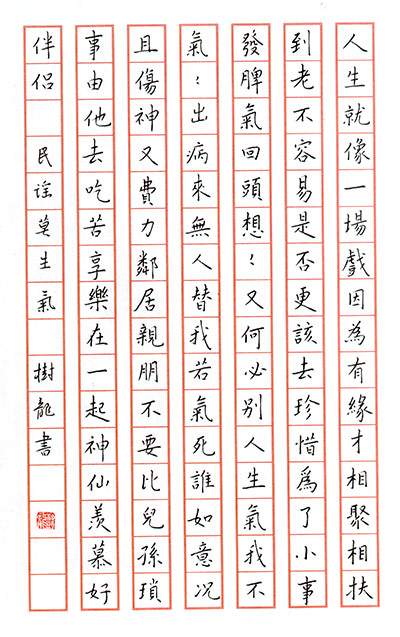 人生就像一場戲因為有緣才相聚相扶
到老不容易是否更該去珍惜爲了小事
發脾氣回頭想〻又何必別人生氣我不
氣〻出病來無人替我若氣死誰如意況
且傷神又費力鄰居親朋不要比兒孫瑣
事由他去吃苦享樂在一起神仙羨慕好
伴侶 民谣莫生氣 樹龍書